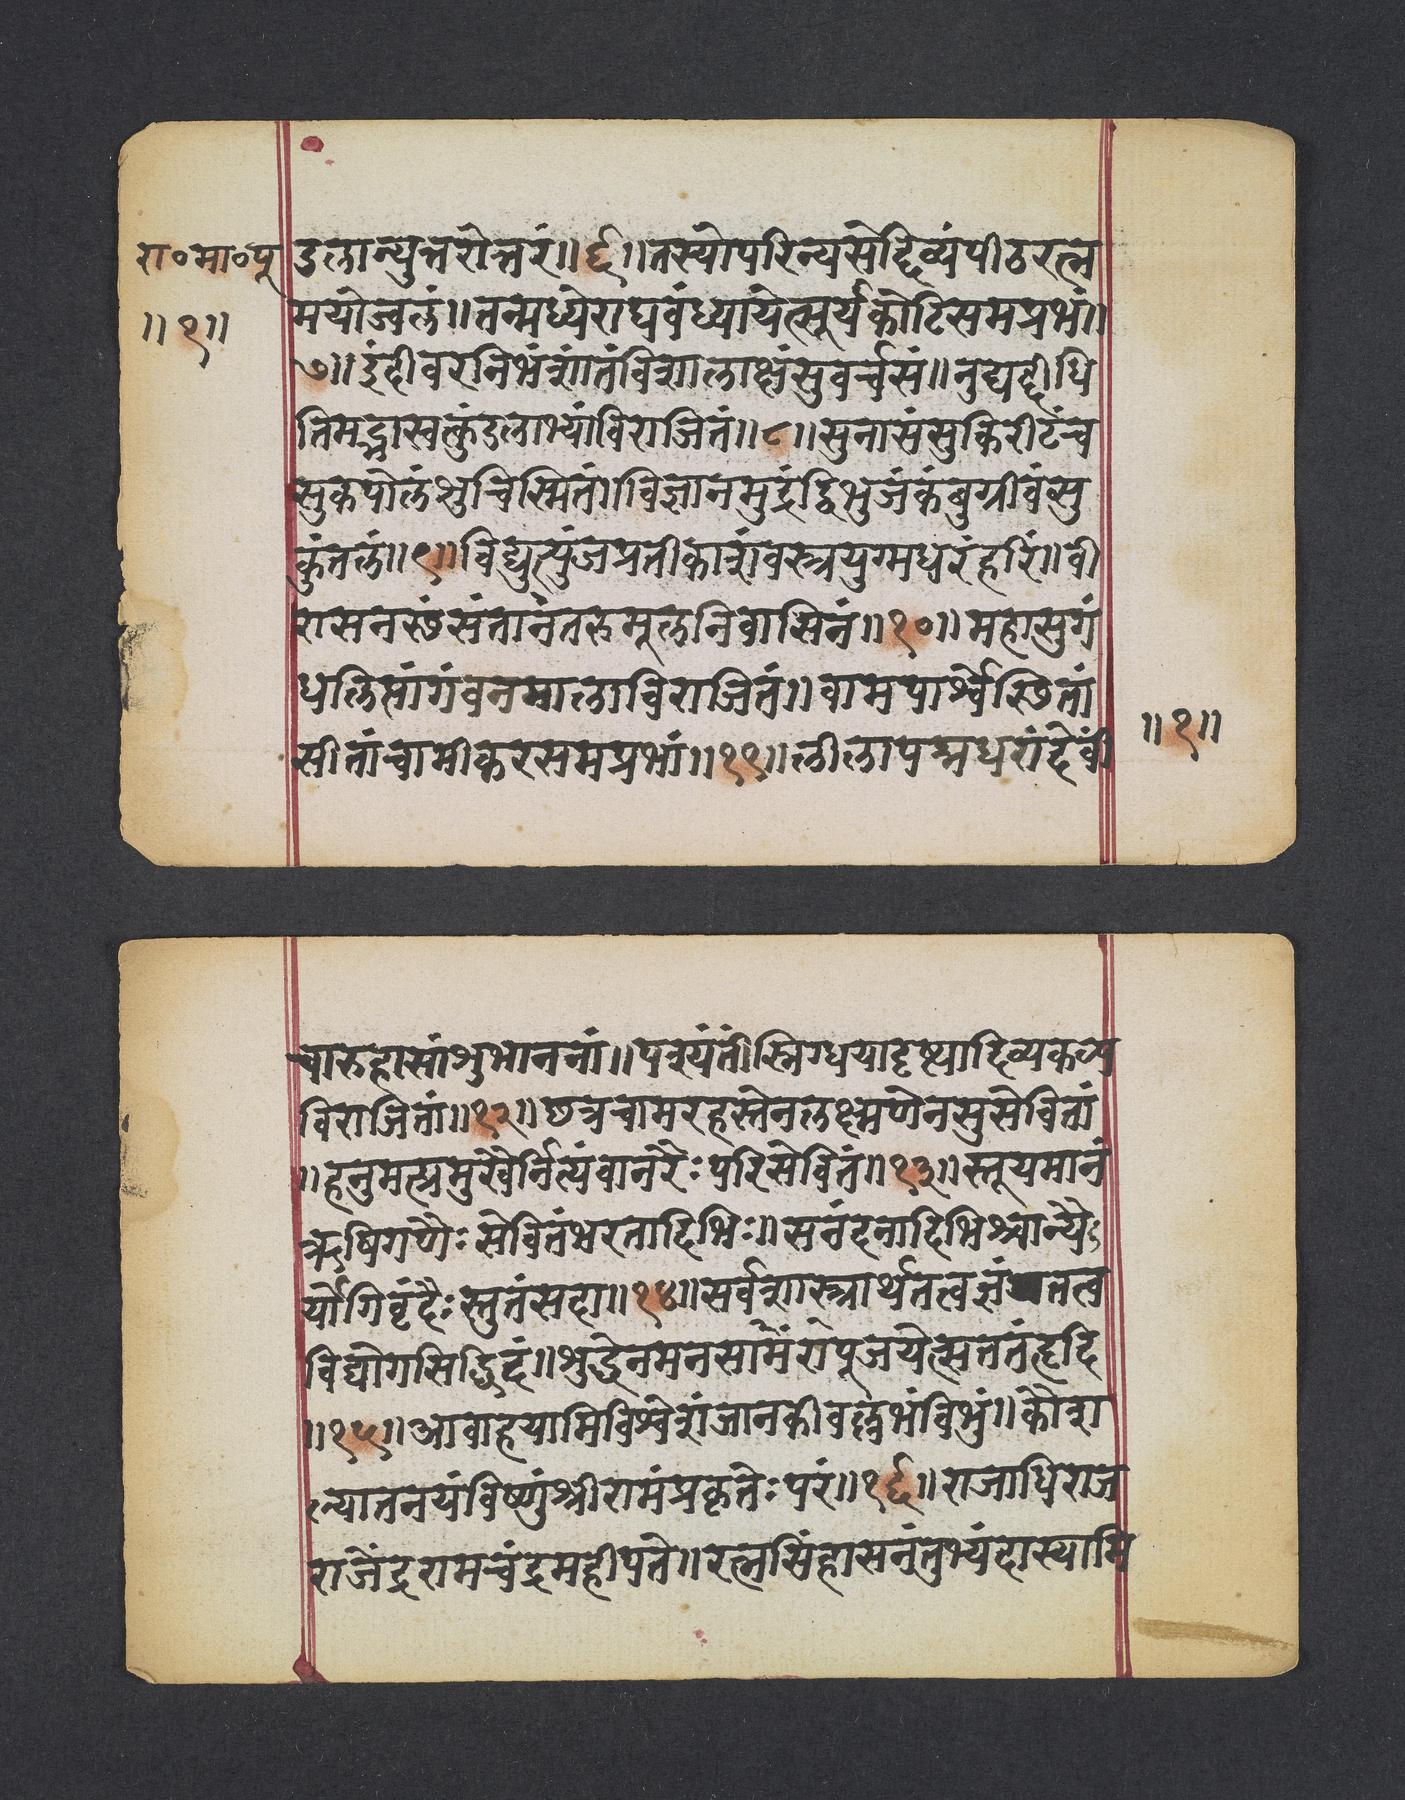 रा०मा०पू
॥१॥
डलान्युत्तरोत्तरं॥६॥तस्योपरिन्यसेद्दिव्यंपीठरत्न
मयोज्वलं॥तन्मध्येराघवंध्यायेत्सूर्यकोटिसमप्रभं॥
७॥इंदीवरनिभंशांतंविशालाक्षंसुवर्चसं॥नुद्यद्दीधि
तिमद्भास्वत्कुंडलाभ्यांविराजितं॥८॥सुनासंसुकिरीटंच
सुकपोलंशुचिस्मितं॥विज्ञानमुद्रंद्विभुजंकंबुग्रीवंसु
कुंतलं॥९॥विद्युत्पुंजप्रतीकाशंवस्त्रयुग्मधरंहरिं॥वी
रासनस्थंसंतानंतरुमूलनिवासिनं॥१०॥महासुगं
धलिप्तांगंवनमालाविराजितं॥वामपार्श्वेस्थितां
सीतांचामीकरसमप्रभां॥११॥लीलापद्मधरांदेवीं
॥१॥
चारुहासांशुभाननां॥पश्यंतींस्निग्धयादृष्ट्यादिव्यकल्प
विराजितां॥१२॥छत्रचामरहस्तेनलक्ष्मणेनसुसेवितां
॥हनुमत्प्रमुखैर्नित्यंवानरैःपरिसेवितं॥१३॥स्तूयमानं
ऋषिगणैःसेवितंभरतादिभिः॥सनंदनादिभिश्चान्यै
र्योगिवृंदैःस्तुतंसदा॥१४॥सर्वशास्त्रार्थतत्वज्ञंतत्व
विद्योगसिद्धिदं॥शुद्धेनमनसापूजयेत्सततंहृदि
॥१५॥आवाहयामिविश्वेशंजानकीवल्लभंविभुं॥कौश
ल्यातनयंविष्णुंश्रीरामंप्रकृतेःपरं॥१६॥राजाधिराज
राजेंद्ररामचंद्रमहीपते॥रत्नसिंहासनंतुभ्यंदास्यामि